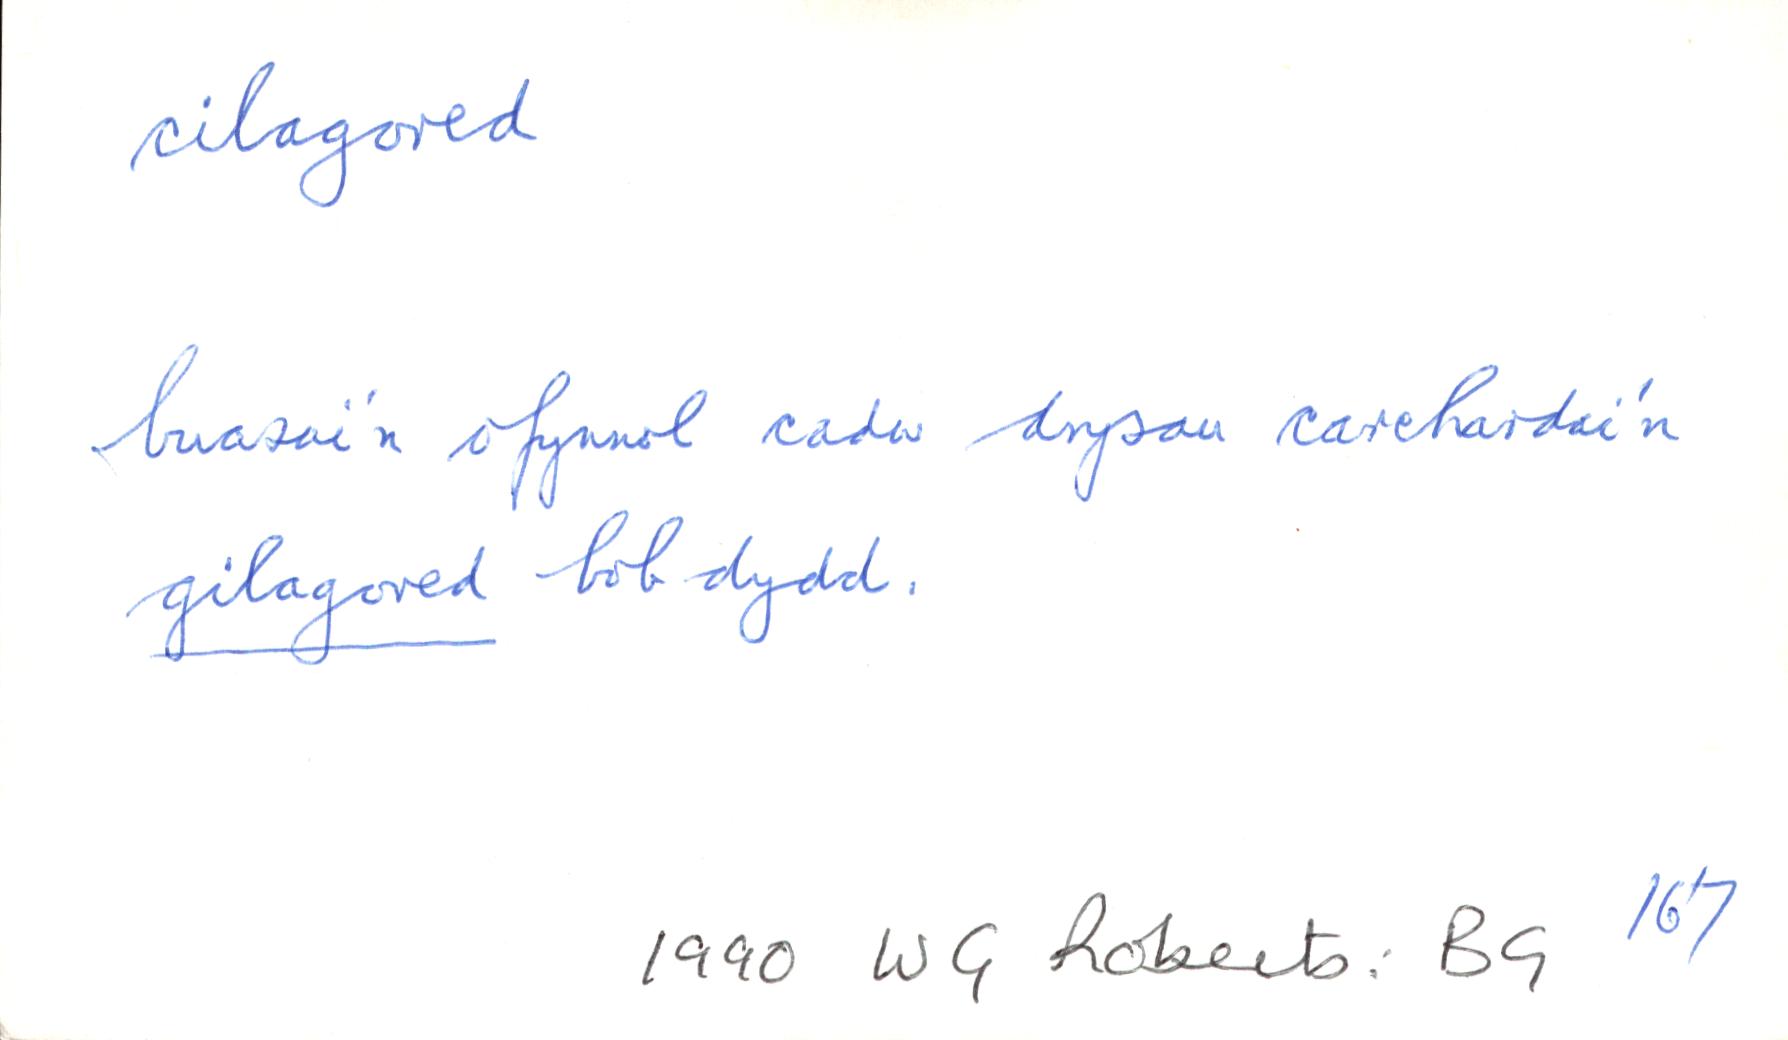 cilagored
buasai'n ofynnol cadw drysau carchardai'n
gilagored bob dydd.
1990 WG Roberts: BG 167